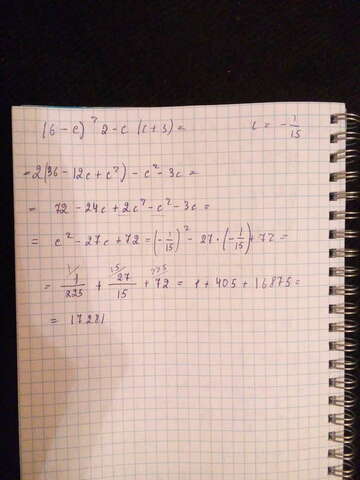 (6 - c)² 2 - c (c + 3) = c = -1/15
= 2(36 - 12c + c²) - c² - 3c =
= 72 - 24c + 2c² - c² - 3c =
= c² - 27c + 72 = (-1/15)² - 27 · (-1/15) + 72 =
= 1/225 + 27/15 + 72 = 1 + 405 + 16875 =
= 17281